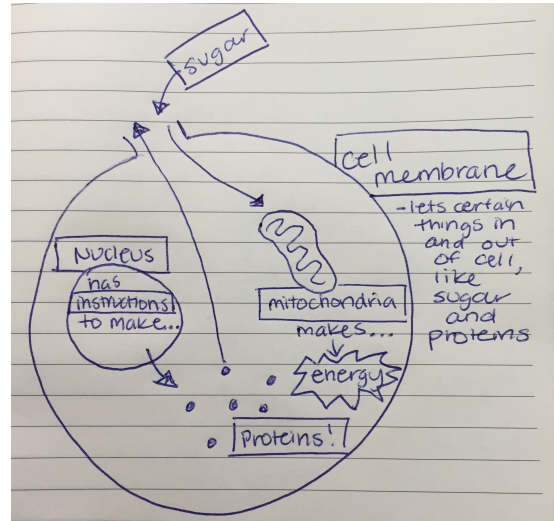 sugar
cell
membrane
-lets certain
things in
and out
of cell,
like
sugar
and
proteins
Nucleus
has
instructions
to make...
mitochondria
makes...
energy
Proteins!